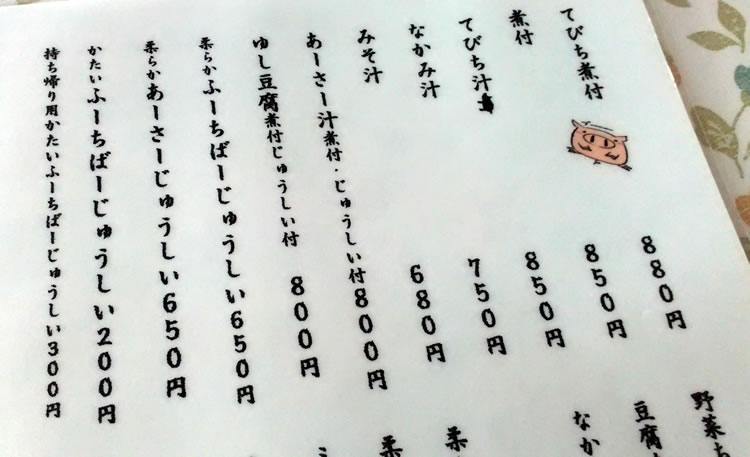 てびち煮付 880円
煮付 850円
てびち汁 850円
なかみ汁 750円
みそ汁 680円
あーさー汁煮付・じゅうしい付800円
ゆし豆腐煮付じゅうしい付 800円
柔らかふーちばーじゅうしい650円
柔らかあーさーじゅうしい650円
かたいふーちばーじゅうしい200円
持ち帰り用かたいふーちばーじゅうしい300円
野菜ち
豆腐
なか
柔
柔